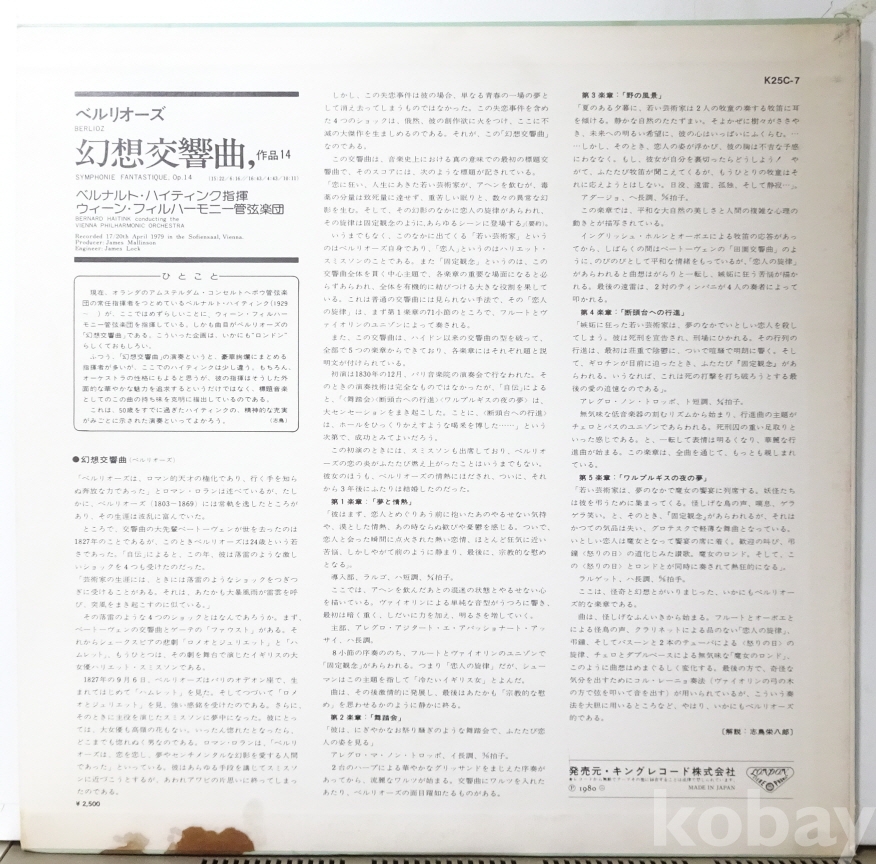 K25C-7
ベルリオーズ
BERLIOZ
幻想交響曲,作品14
SYMPHONIE FANTASTIQUE, Op.14
ベルナルト・ハイティンク指揮
ウィーン・フィルハーモニー管弦楽団
BERNARD HAITINK conducting the
VIENNA PHILHARMONIC ORCHESTRA
Recorded 17/20th April 1979 in the Sofiensaal, Vienna.
Producer: James Mallinson
Engineer: James Lock
ひとこと
現在、オランダのアムステルダム・コンセルトヘボウ管弦楽
団の常任指揮者をつとめているベルナルト・ハイティンク(1929
~ )が、ここではめずらしいことに、ウィーン・フィルハー
モニー管弦楽団を指揮している。しかも曲目がベルリオーズの
「幻想交響曲」である。こういった企画は、いかにも“ロンドン”
らしくておもしろい。
ふつう、「幻想交響曲」の演奏というと、豪華絢爛にまとめる
指揮者が多いが、ここでのハイティンクは少し違う。もちろん、
オーケストラの性格にもよると思うが、彼の指揮はそうした外
面的な華やかな魅力を追求するというだけではなく、標題音楽
としてのこの曲の持ち味を克明に描出しているのである。
これは、50歳をすでに過ぎたハイティンクの、精神的な充実
がみごとに示された演奏といってよかろう。 (志鳥)
●幻想交響曲(ベルリオーズ)
「ベルリオーズは、ロマン的天才の権化であり、行く手を知ら
ぬ奔放な力であった」とロマン・ロランは述べているが、たし
かに、ベルリオーズ(1803―1869)には常軌を逸したところが
あり、その生涯は波乱に富んでいた。
ところで、交響曲の大先輩ベートーヴェンが世を去ったのは
1827年のことであるが、このときベルリオーズは24歳という若
さであった。「自伝」によると、この年、彼は落雷のような激し
いショックを4つも受けたのだった。
「芸術家の生涯には、ときには落雷のようなショックをつぎつ
ぎに受けることがある。それは、あたかも大暴風雨が雷雲を呼
び、突風をまき起こすのに似ている。」
その落雷のような4つのショックとはなんであろうか。まず、
ベートーヴェンの交響曲とゲーテの「ファウスト」がある。そ
れからシェークスピアの悲劇「ロメオとジュリエット」と「ハ
ムレット」、もうひとつは、その劇を舞台で演じたイギリスの大
女優ハリエット・スミスソンである。
1827年の9月6日、ベルリオーズはパリのオデオン座で、生
まれてはじめて「ハムレット」を見た。そしてつづいて「ロメ
オとジュリエット」を見、強い感銘を受けたのである。さらに、
そのときに主役を演じたスミスソンに夢中になった。彼にとっ
ては、大女優も高嶺の花もない。いったん惚れたとなったら、
どこまでも惚れぬく男なのである。ロマン・ロランは、「ベルリ
オーズは、恋を恋し、夢やセンチメンタルな幻影を愛する人間
であった」といっている。彼はあらゆる手段を講じてスミスソ
ンに近づこうとするが、あわれアワビの片思いに終ってしまっ
たのである。
¥2,500
しかし、この失恋事件は彼の場合、単なる青春の一場の夢と
して消え去ってしまうものではなかった。この失恋事件を含め
た4つのショックは、俄然、彼の創作欲に火をつけ、ここに不
滅の大傑作を生ましめるのである。それが、この「幻想交響曲」
なのである。
この交響曲は、音楽史上における真の意味での最初の標題交
響曲で、そのスコアには、次のような標題が記されている。
「恋に狂い、人生にあきた若い芸術家が、アヘンを飲むが、毒
薬の分量は致死量に達せず、重苦しい眠りと、数々の異常な幻
影を生む。そして、その幻影のなかに恋人の旋律があらわれ、
その旋律は固定観念のように、あらゆるシーンに登場する(要約)。
いうまでもなく、このなかに出てくる「若い芸術家」という
のはベルリオーズ自身であり、「恋人」というのはハリエット・
スミスソンのことである。また「固定観念」というのは、この
交響曲全体を貫く中心主題で、各楽章の重要な場面になると必
らずあらわれ、全体を有機的に結びつける大きな役割を果して
いる。これは普通の交響曲には見られない手法で、その「恋人
の旋律」は、まず第1楽章の71小節のところで、フルートとヴ
ァイオリンのユニゾンによって奏される。
また、この交響曲は、ハイドン以来の交響曲の型を破って、
全部で5つの楽章からできており、各楽章にはそれぞれ題と説
明文が付けられている。
初演は1830年の12月、パリ音楽院の演奏会で行なわれた。そ
のときの演奏技術は完全なものではなかったが、「自伝」による
と、「〈舞踏会〉〈断頭台への行進〉〈ワルプルギスの夜の夢〉は、
大センセーションをまき起こした。ことに、〈断頭台への行進〉
は、ホールをひっくりかえすような喝采を博した……」という
次第で、成功とみてよいだろう。
この初演のときには、スミスソンも出席しており、ベルリオ
ーズの恋の炎がふたたび燃え上がったことはいうまでもない。
彼女のほうも、ベルリオーズの熱情にほだされ、ついに、それ
から3年後にふたりは結婚したのだった。
第1楽章:「夢と情熱」
「彼はまず、恋人とめぐりあう前に抱いたあのやるせない気持
や、漠とした情熱、あの時ならぬ歓びや憂鬱を感じる。ついで、
恋人と会った瞬間に点火された熱い恋情、ほとんど狂気に近い
苦悩、しかしやがて前のように静まり、最後に、宗教的な慰め
となる」。
導入部、ラルゴ、ハ短調、4/4拍子。
ここでは、アヘンを飲んだあとの混迷の状態とやるせない心
を描いている。ヴァイオリンによる単純な音型がうつろに響き、
最初は暗く重く、しだいに力を加え、明るさを増していく。
主部、アレグロ・アジタート・エ・アパッショナート・アッ
サイ、ハ長調。
8小節の序奏ののち、フルートとヴァイオリンのユニゾンで
「固定観念」があらわれる。つまり「恋人の旋律」だが、シュー
マンはこの主題を指して「冷たいイギリス女」とよんだ。
曲は、その後激情的に発展し、最後はあたかも「宗教的な慰
め」を思わせるかのように静かに終る。
第2楽章:「舞踏会」
「彼は、にぎやかなお祭り騒ぎのような舞踏会で、ふたたび恋
人の姿を見る」
アレグロ・マ・ノン・トロッポ、イ長調、3/8拍子。
2台のハープによる華やかなグリッサンドをまじえた序奏が
あってから、流麗なワルツが始まる。交響曲にワルツを入れた
あたり、ベルリオーズの面目躍如たるものがある。
第3楽章:「野の風景」
「夏のある夕暮に、若い芸術家は2人の牧童の奏する牧笛に耳
を傾ける。静かな自然のたたずまい。そよかぜに樹々がささや
き、未来への明るい希望に、彼の心はいっぱいにふくらむ。…
…しかし、そのとき、恋人の姿が浮かび、彼の胸は不吉な予感
にわななく。もし、彼女が自分を裏切ったらどうしよう! や
がて、ふたたび牧笛が聞こえてくるが、もうひとりの牧童はそ
れに応えようとはしない。日没、遠雷、孤独、そして静寂…」
アダージョ、ヘ長調、6/8拍子。
この楽章では、平和な大自然の美しさと人間の複雑な心理の
動きとが描写されている。
イングリッシュ・ホルンとオーボエによる牧笛の応答があっ
てから、しばらくの間はベートーヴェンの「田園交響曲」のよ
うに、のびのびとして平和な情緒をもっているが、「恋人の旋律」
があらわれると曲想はがらりと一転し、嫉妬に狂う苦悩が描か
れる。最後の遠雷は、2対のティンパニが4人の奏者によって
叩かれる。
第4楽章:「断頭台への行進」
「嫉妬に狂った若い芸術家は、夢のなかでいとしい恋人を殺し
てしまう。彼は死刑を宣告され、刑場にひかれる。その行列の
行進は、最初は荘重で陰鬱に、ついで喧騒で明朗に響く。そし
て、ギロチンが目前に迫ったとき、ふたたび『固定観念』があ
らわれる。いうなれば、これは死の打撃を打ち破ろうとする最
後の愛の追憶なのである」。
アレグロ・ノン・トロッポ、ト短調、4/4拍子。
無気味な低音楽器の刻むリズムから始まり、行進曲の主題が
チェロとバスのユニゾンであらわれる。死刑囚の重い足取りと
いった感じである。と、一転して表情は明るくなり、華麗な行
進曲が始まる。この楽章は、全曲を通じて、もっとも親しまれ
ている。
第5楽章:「ワルプルギスの夜の夢」
「若い芸術家は、夢のなかで魔女の饗宴に列席する。妖怪たち
は彼を弔うために集まってくる。怪しげな鳥の声、喘息、ゲラ
ゲラ笑い。と、そのとき、『固定観念』があらわれるが、それは
かつての気品は失い、グロテスクで軽薄な舞曲となっている。
いとしい恋人は魔女となって饗宴の席に着く。歓迎の叫び、弔
鐘〈怒りの日〉の道化じみた讃歌。魔女のロンド。そして、こ
の〈怒りの日〉とロンドとが同時に奏されて熱狂的になる」。
ラルゲット、ハ長調、4/4拍子。
ここは、怪奇と幻想とがいりまじった、いかにもベルリオー
ズ的な楽章である。
曲は、怪しげなふんいきから始まる。フルートとオーボエと
による怪鳥の声、クラリネットによる品のない「恋人の旋律」、
弔鐘、そしてバスーンと2本のチューバによる〈怒りの日〉の
旋律、チェロとダブルベースによる無気味な「魔女のロンド」。
このように曲想はめまぐるしく変化する。最後の方で、奇怪な
気分を出すためにコル・レーニョ奏法(ヴァイオリンの弓の木
の方で弦を叩いて音を出す)が用いられているが、こういう奏法
を大胆に用いるところなど、やはり、いかにもベルリオーズ
的である。
〔解説:志鳥栄八郎〕
発売元・キングレコード株式会社
Ⓟ1980
MADE IN JAPAN
LONDON
kobay